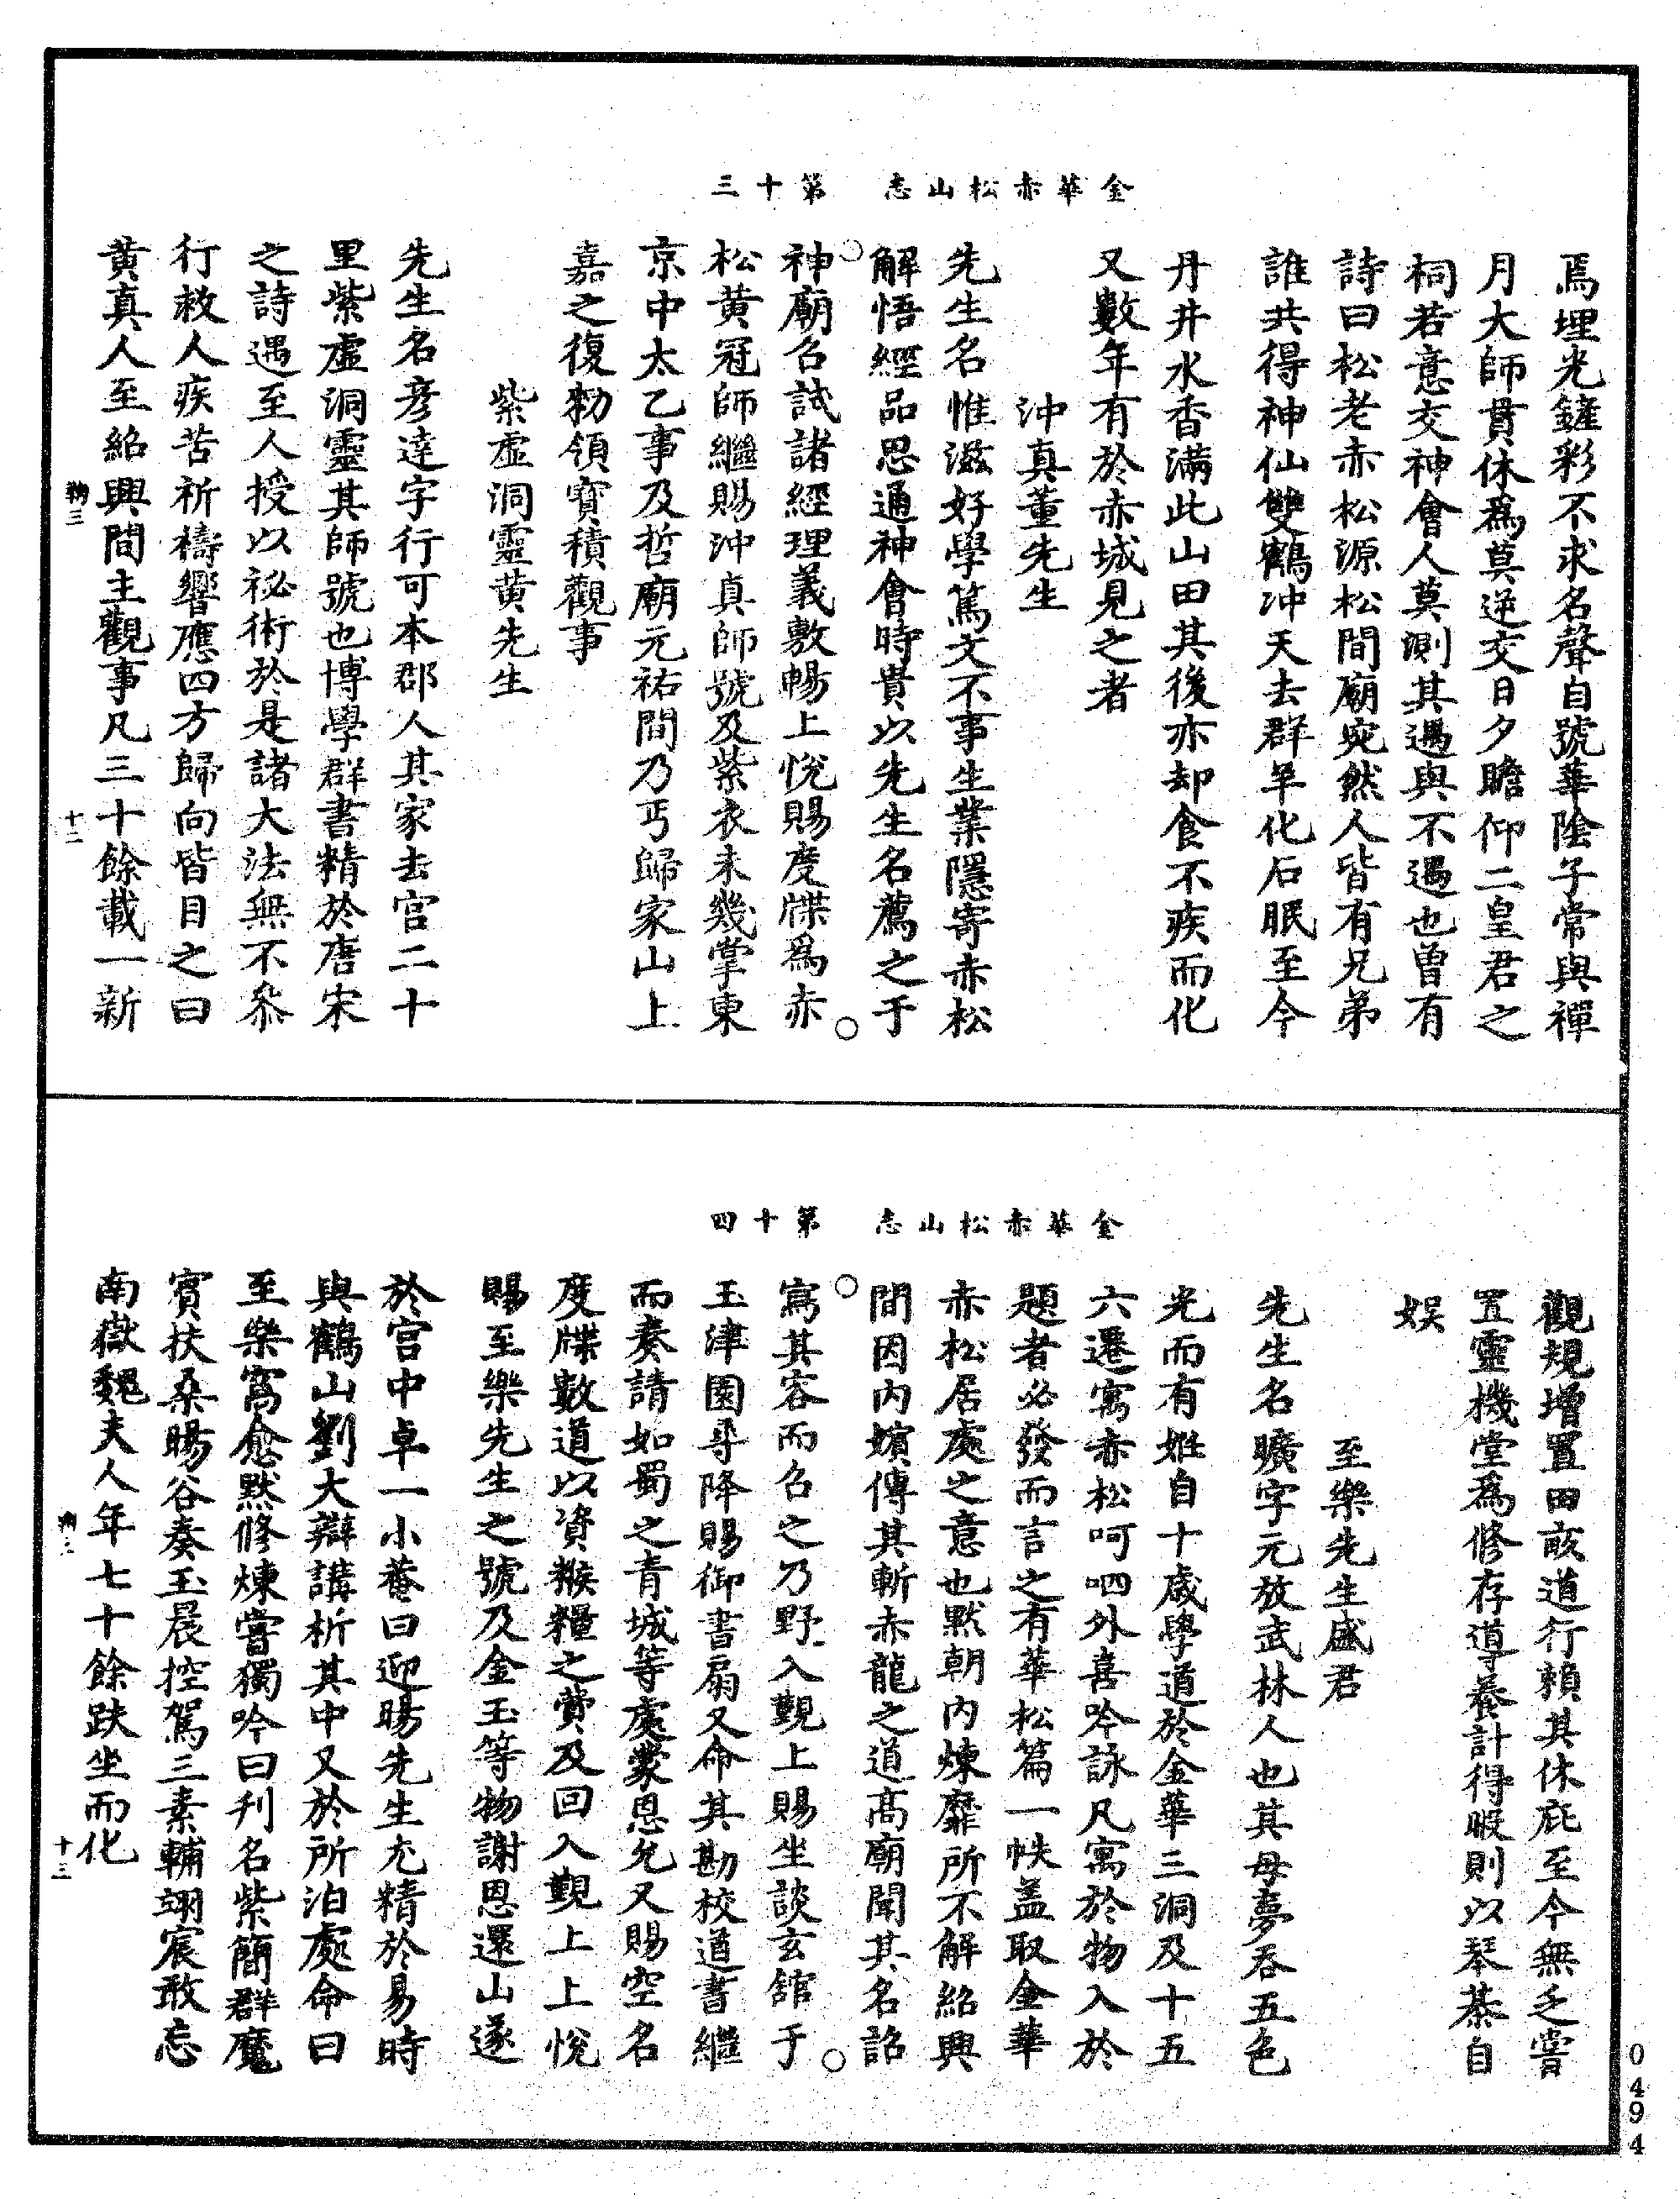 金華赤松山志　第十三
焉埋光鏟彩不求名聲自號華陰子常與禪
月大師貫休爲莫逆交日夕瞻仰二皇君之
祠若意交神會人莫測其遇與不遇也曾有
詩曰松老赤松源松間廟宛然人皆有兄弟
誰共得神仙雙鶴冲天去群羊化石眠至今
丹井水香滿此山田其後亦却食不疾而化
又數年有於赤城見之者
沖真董先生
先生名惟滋好學篤文不事生業隱寄赤松
解悟經品思通神會時貴以先生名薦之于
神廟召試諸經理義敷暢上悅賜度牒爲赤
松黄冠師繼賜沖真師號及紫衣未幾掌東
京中太乙事及哲廟元祐間乃丐歸家山上
嘉之復勑領寶積觀事
紫虛洞靈黄先生
先生名彥達字行可本郡人其家去宫二十
里紫虛洞靈其師號也博學群書精於唐宋
之詩遇至人授以祕術於是諸大法無不叅
行救人疾苦祈禱響應四方歸向皆目之曰
黄真人至紹興間主觀事凡三十餘載一新
十二
金華赤松山志　第十四
觀規增置田畝道行賴其休庇至今無乏嘗
置靈機堂爲修存導養計得暇則以琴棊自
娱
至樂先生盛君
先生名曠字元放武林人也其母夢吞五色
光而有姙自十歲學道於金華三洞及十五
六遷寓赤松呵呬外喜吟詠凡寓於物入於
題者必發而言之有華松篇一帙盖取金華
赤松居處之意也默朝内煉靡所不解紹興
間因内嬪傳其斬赤龍之道高廟聞其名詔
寫其容而召之乃野入覲上賜坐談玄舘于
玉津園尋降賜御書扇又命其勘校道書繼
而奏請如蜀之青城等處蒙恩允又賜空名
度牒數道以資糇糧之費及回入覲上上悅
賜至樂先生之號及金玉等物謝恩還山遂
於宫中卓一小菴曰迎暘先生尤精於易時
與鶴山劉大辯講析其中又於所泊處命曰
至樂窩愈默修煉嘗獨吟曰刋名紫簡群魔
賓扶桑暘谷奏玉晨控駕三素輔翊宸敢忘
南嶽魏夫人年七十餘趺坐而化
十三
0494